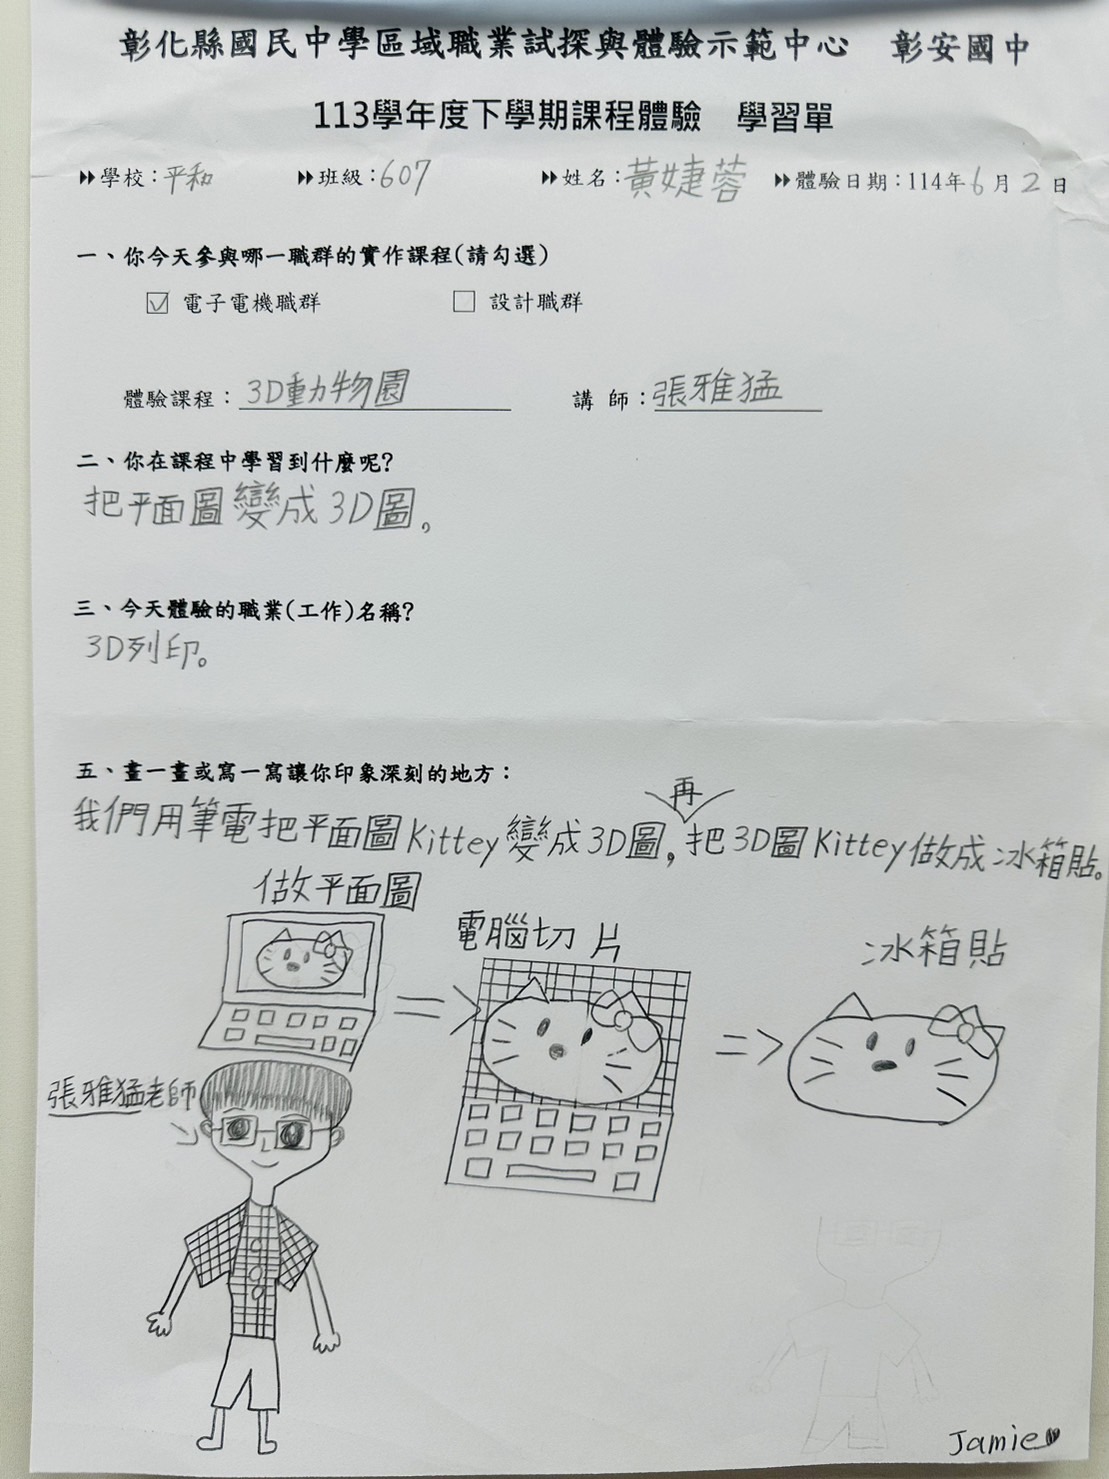 彰化縣國民中學區域職業試探與體驗示範中心　彰安國中
113學年度下學期課程體驗　學習單
學校：平和　班級：607　姓名：黃婕蓉　體驗日期：114年6月2日
一、你今天參與哪一職群的實作課程(請勾選)
☑ 電子電機職群　☐ 設計職群
體驗課程：3D動物園　講 師：張雅猛
二、你在課程中學習到什麼呢?
把平面圖變成3D圖,
三、今天體驗的職業(工作)名稱?
3D列印。
五、畫一畫或寫一寫讓你印象深刻的地方：
再
我們用筆電把平面圖Kittey變成3D圖,把3D圖Kittey做成冰箱貼。
做平面圖
電腦切片
冰箱貼
張雅猛老師
Jamie